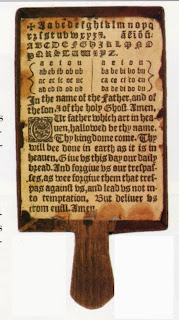 ✠ Aabcdefghiklmnopq
rzſstuvwxyz. āēīōū
ABCDEFGHIKLMNO
PQRSTUWXYZ.
a e i o u a e i o u
ab eb ib ob ub ba be bi bo bu
ac ec ic oc uc ca ce ci co cu
ad ed id od ud da de di do du
In the name of the Father, and of
the ſon, & of the holy Ghoſt Amen,
Our father which art in hea-
uen, hallowed be thy name.
Thy kingdome come. Thy
will bee done in earth as it is in
heauen. Giue vs this day our daily
bread. And forgiue vs our treſpaſ-
ſes, as wee forgiue them that treſ-
pas againſt vs, and lead vs not in-
to temptation. But deliver vs
from euill. Amen.